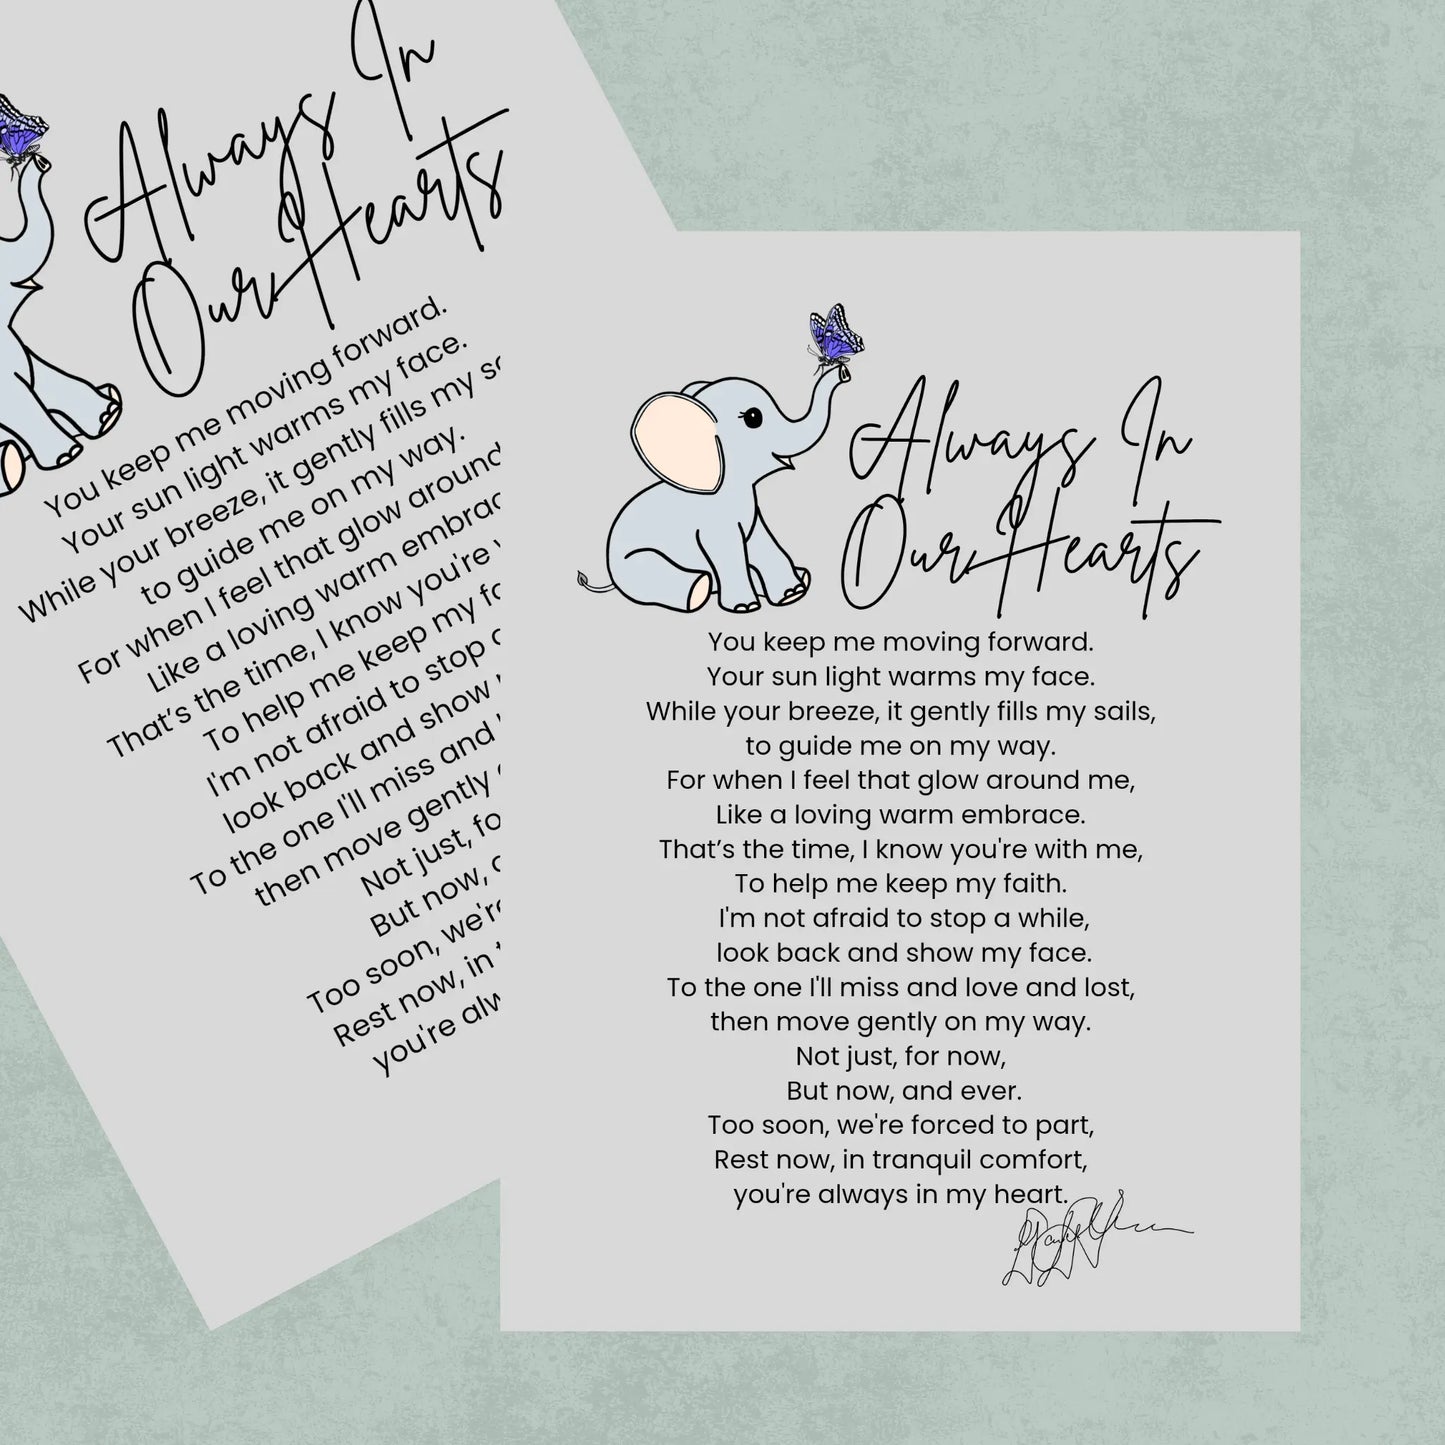 Always In
Our Hearts
You keep me moving forward.
Your sun light warms my face.
While your breeze, it gently fills my so
to guide me on my way.
For when I feel that glow around
Like a loving warm embrac
That’s the time, I know you're
To help me keep my fa
I'm not afraid to stop
look back and show
To the one I'll miss and
then move gently
Not just, fo
But now,
Too soon, we're
Rest now, in
you're alw
Always In
Our Hearts
You keep me moving forward.
Your sun light warms my face.
While your breeze, it gently fills my sails,
to guide me on my way.
For when I feel that glow around me,
Like a loving warm embrace.
That’s the time, I know you're with me,
To help me keep my faith.
I'm not afraid to stop a while,
look back and show my face.
To the one I'll miss and love and lost,
then move gently on my way.
Not just, for now,
But now, and ever.
Too soon, we're forced to part,
Rest now, in tranquil comfort,
you're always in my heart.